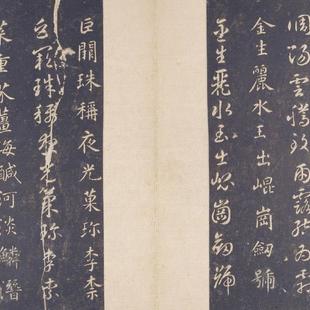 調陽雲騰致雨露結為霜
金生麗水玉出崐崗劒號
金生麗水玉出崐崗劒號
巨闕珠稱夜光菓珍李柰
巨闕珠稱夜光菓珍李柰
菜重芥薑海鹹河淡鱗潛